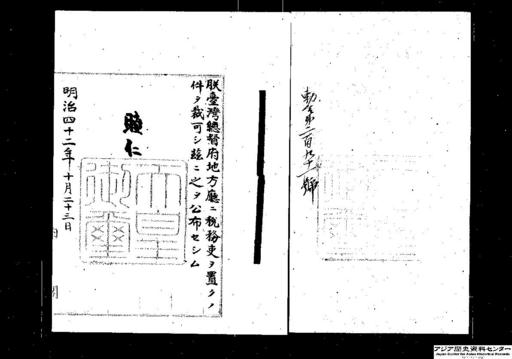 勅令第二百九十一號
朕臺灣總督府地方廳ニ稅務吏ヲ置クノ
件ヲ裁可シ玆ニ之ヲ公布セシム
睦仁
天皇御璽
明治四十二年十月二十三日
アジア歴史資料センター
Japan Center for Asian Historical Records